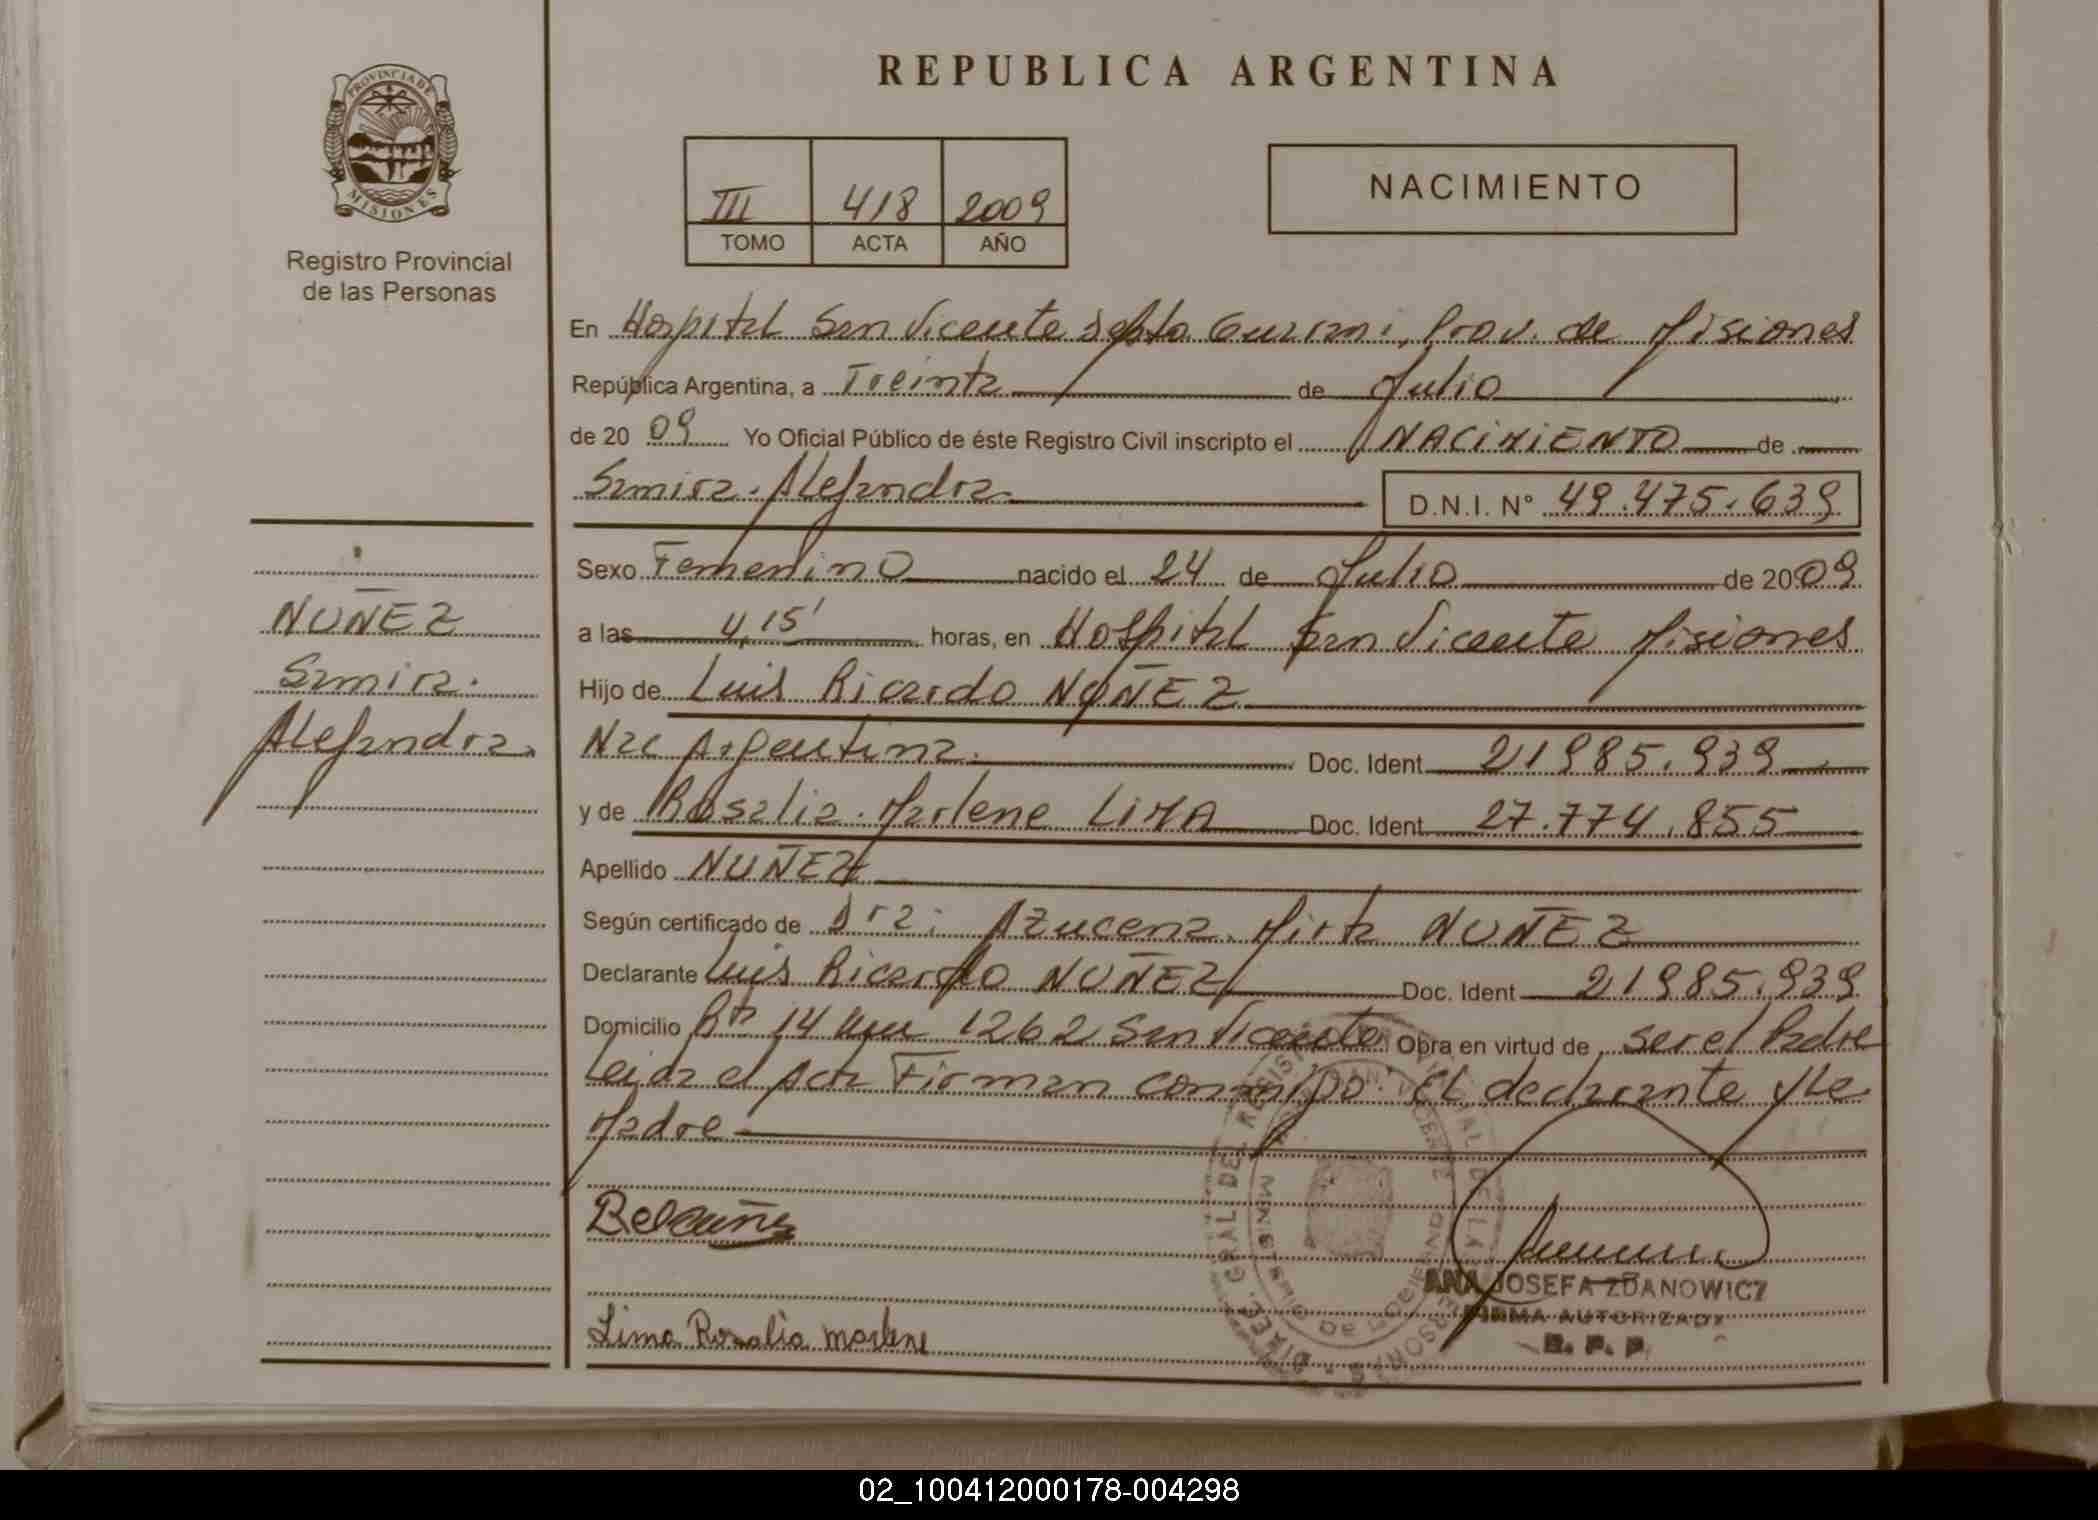 REPUBLICA ARGENTINA
PROVINCIA DE
MISIONES
Registro Provincial
de las Personas
III 418 2009
TOMO ACTA AÑO
NACIMIENTO
En Hospital San Vicente Depto Guarani, Prov. de Misiones
República Argentina, a Treinta de Julio
de 2009 Yo Oficial Público de éste Registro Civil inscripto el NACIMIENTO de
Samira. Alejandra
D.N.I. N° 49.475.639
Sexo Femenino nacido el 24 de Julio de 2009
a las 4,15' horas, en Hospital San Vicente Misiones
Hijo de Luis Ricardo NUÑEZ
Nac Argentina. Doc. Ident 21985.939
y de Rosalia. Marlene LIMA Doc. Ident 27.774.855
Apellido NUÑEZ
Según certificado de Dra: Azucena. Mirta NUÑEZ
Declarante Luis Ricardo NUÑEZ Doc. Ident 21985.939
Domicilio Rta 14 km 1262 San Vicente Obra en virtud de ser el Padre
Leida el Acta Firman conmigo: El declarante y la
Madre
NUÑEZ
Samira.
Alejandra.
Lima Rosalia marlene
DIREC. GRAL DEL REGISTRO
SAN VICENTE
MINISTERIO DE GOBIERNO
ANA JOSEFA ZDANOWICZ
FIRMA AUTORIZADA
R. P. P.
02_100412000178-004298